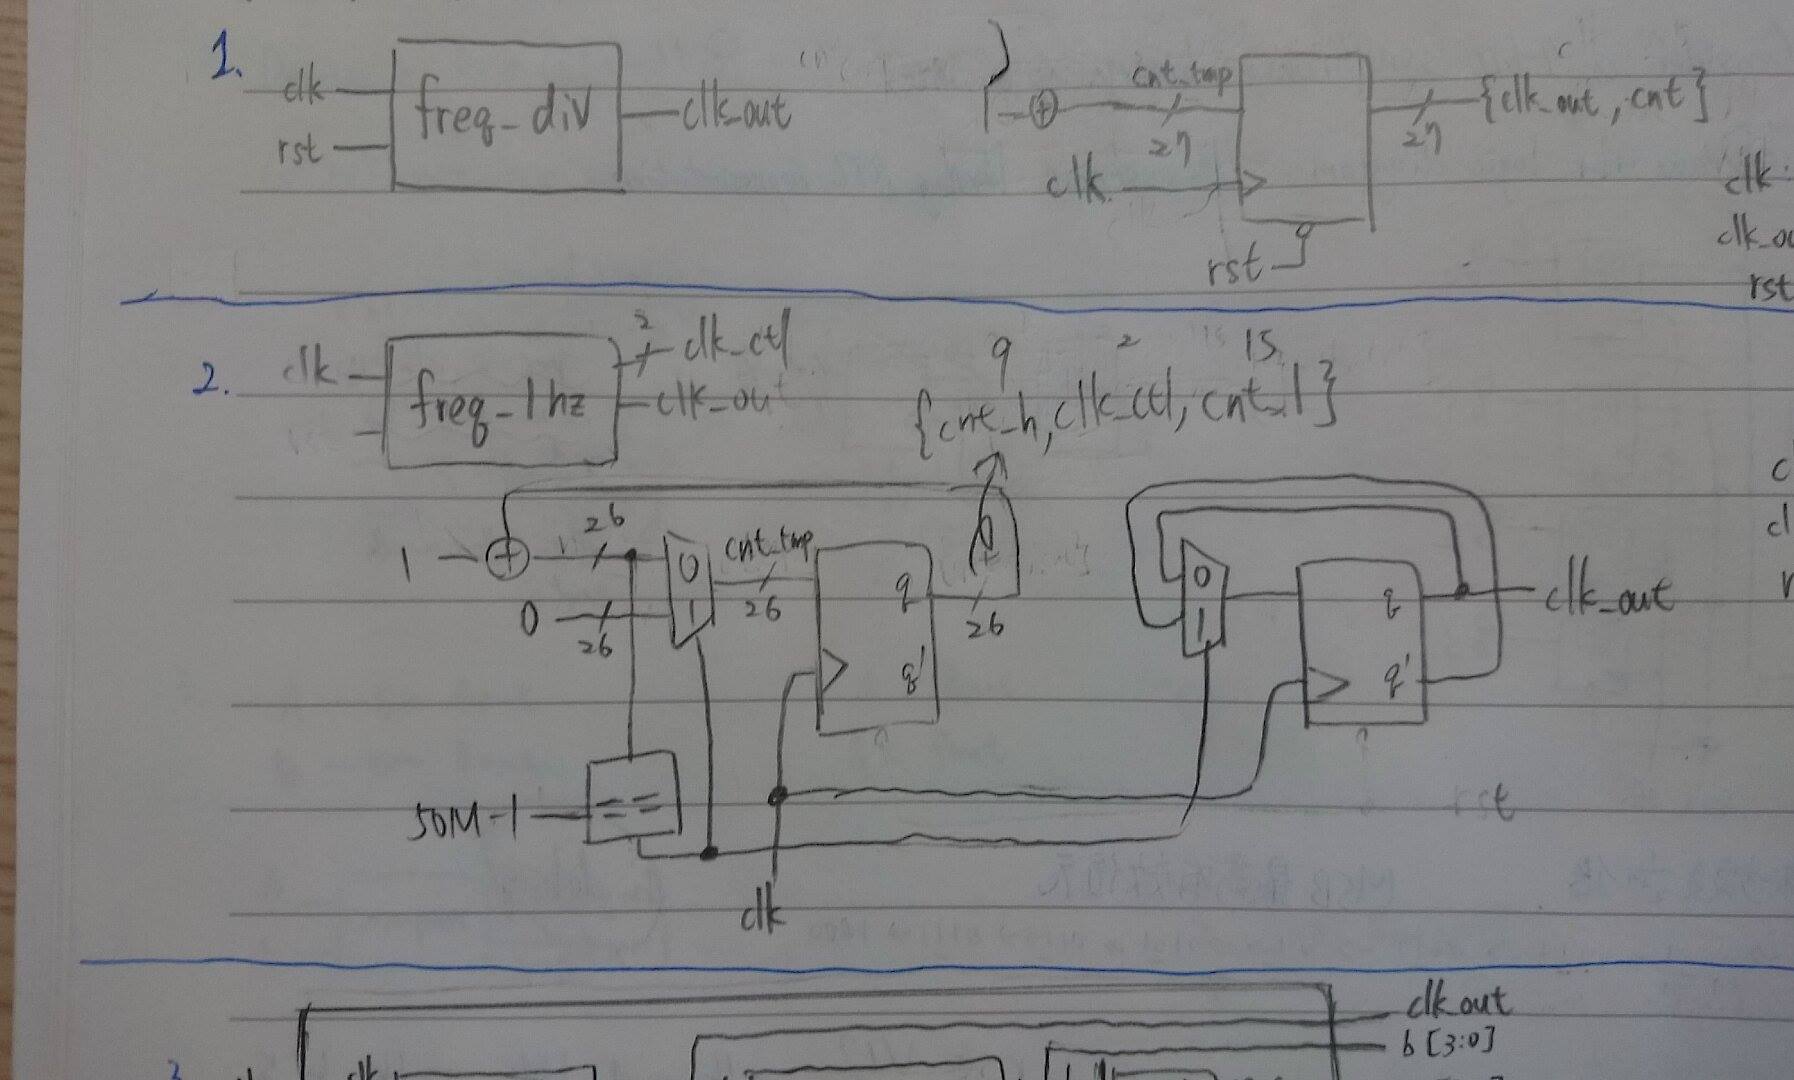 1.
clk
rst
freq_div
clk_out
cnt_tmp
27
clk
rst
27
{clk_out, cnt}
clk
clk_ou
rst
2.
clk
freq_1hz
2
clk_ctl
clk_out
9 2 15
{cnt_h, clk_ctl, cnt_l}
1
26
0
26
0
1
cnt_tmp
26
q
q'
26
50M-1
==
clk
0
1
q
q'
clk_out
rst
c
cl
r
3
clk
clk_out
b [3:0]